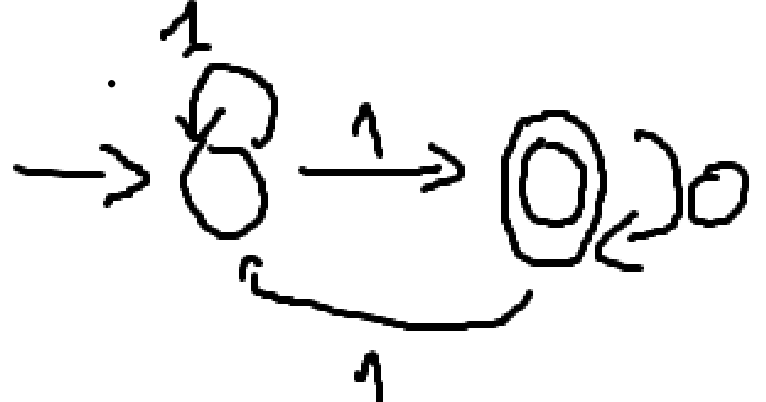 1
1
0
1